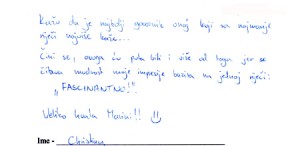 Kažu da je najbolji govornik onaj koji sa najmanje
riječi najviše kaže...
Čini se, ovoga ću puta biti i više od toga jer se
čitava mudrost moje impresije bazira na jednoj riječi:
"FASCINANTNO!"
Veliko hvala Marini!!
Ime - Christian